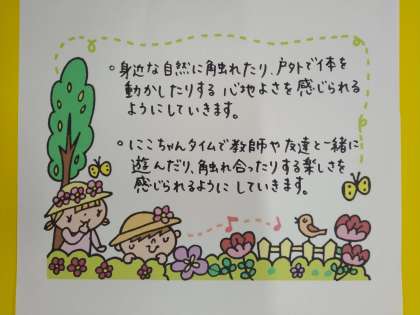 ○身近な自然に触れたり、戸外で体を
動かしたりする心地よさを感じられる
ようにしていきます。
○にこちゃんタイムで教師や友達と一緒に
遊んだり、触れ合ったりする楽しさを
感じられるようにしていきます。